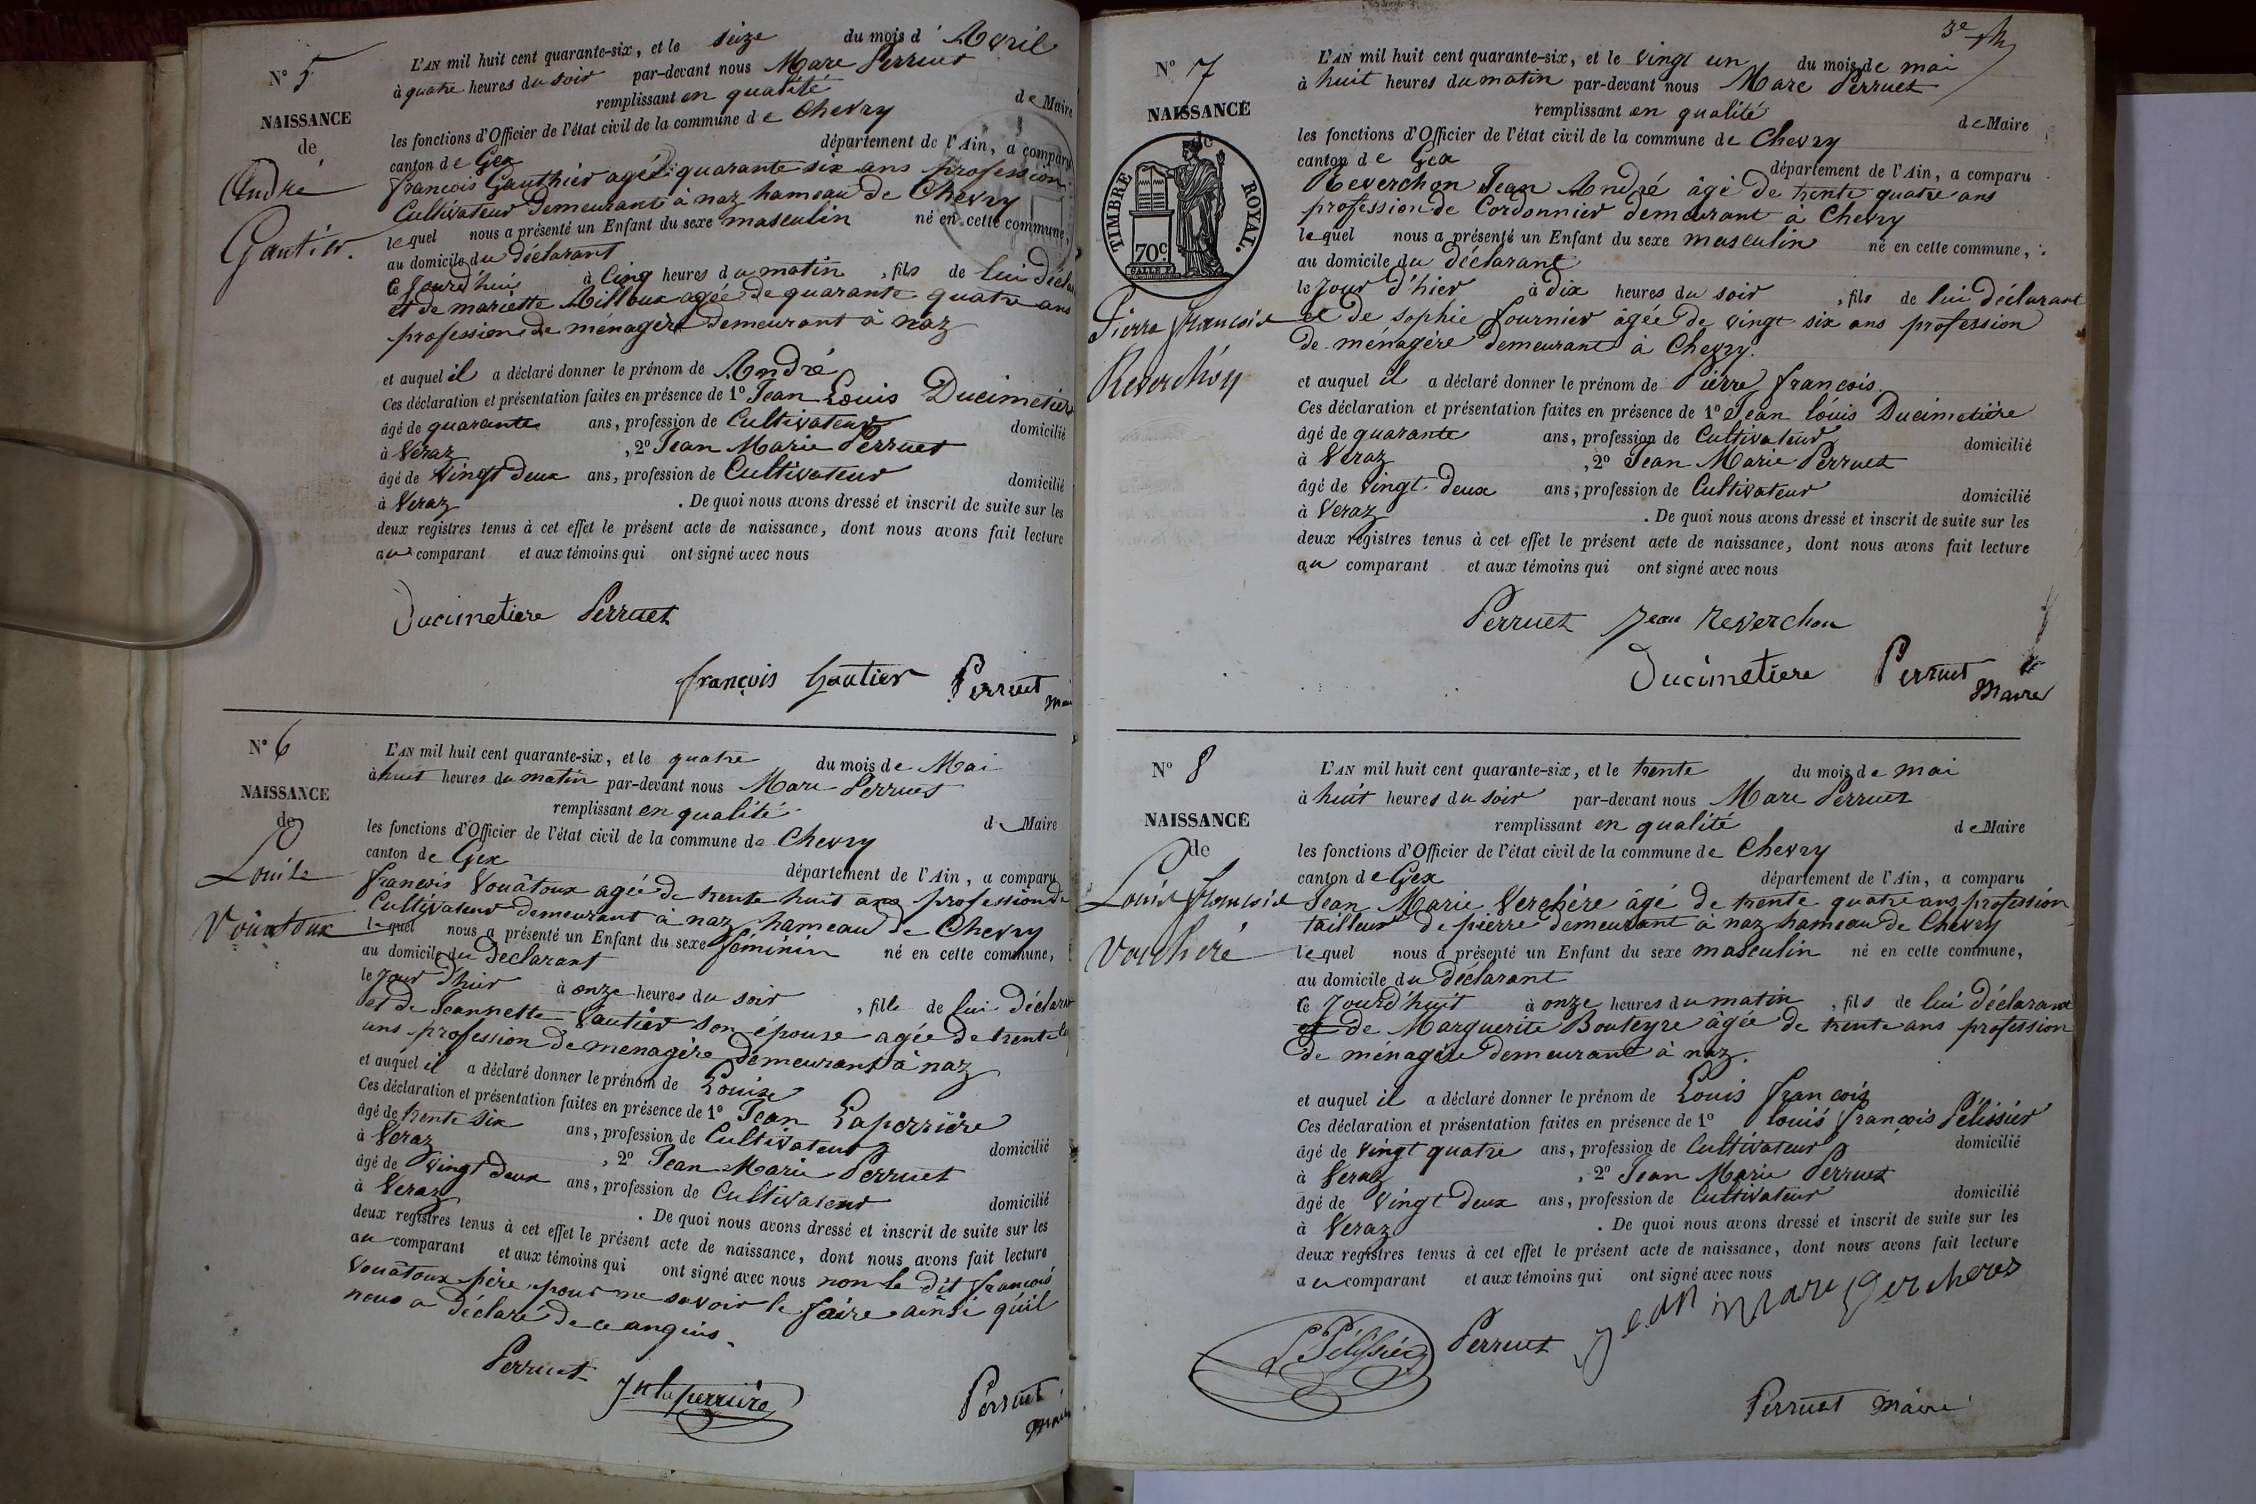 N° 5
NAISSANCE
de
André
Gautier.
L'AN mil huit cent quarante-six, et le seize du mois d'Avril
à quatre heures du soir par-devant nous Marc Perruet
remplissant en qualité de Maire
les fonctions d'Officier de l'état civil de la commune de Chevry
canton de Gex département de l'Ain, a comparu
françois Gauthier agé quarante six ans profession
Cultivateur demeurant à naz hameau de Chevry
lequel nous a présenté un Enfant du sexe masculin né en cette commune,
au domicile du déclarant
Ce Jourd'hui à Cinq heures du matin, fils de lui décla
et de mariette Milloux agée de quarante quatre ans
profession de ménagère demeurant à naz
et auquel il a déclaré donner le prénom de André
Ces déclaration et présentation faites en présence de 1° Jean Louis Ducimetière
âgé de quarante ans, profession de Cultivateur domicilié
à Veraz, 2° Jean Marie Perruet
âgé de vingt deux ans, profession de Cultivateur domicilié
à Veraz. De quoi nous avons dressé et inscrit de suite sur les
deux registres tenus à cet effet le présent acte de naissance, dont nous avons fait lecture
au comparant et aux témoins qui ont signé avec nous
Ducimetiere Perruet
françois Gautier Perruet
N° 6
NAISSANCE
de
Louise
Vouâtoux
L'AN mil huit cent quarante-six, et le quatre du mois de Mai
à huit heures du matin par-devant nous Marc Perruet
remplissant en qualité de Maire
les fonctions d'Officier de l'état civil de la commune de Chevry
canton de Gex département de l'Ain, a comparu
françois Vouâtoux agée de trente huit ans profession de
Cultivateur demeurant à naz hameau de Chevry
lequel nous a présenté un Enfant du sexe féminin né en cette commune,
au domicile du déclarant
le jour d'hier à onze heures du soir, fille de lui déclarant
et de Jeannette Gautier son épouse agée de trente
ans profession de menagère demeurant à naz
et auquel il a déclaré donner le prénom de Louise
Ces déclaration et présentation faites en présence de 1° Jean Laperrière
âgé de trente six ans, profession de Cultivateur domicilié
à Veraz, 2° Jean Marie Perruet
âgé de vingt deux ans, profession de Cultivateur domicilié
à Veraz. De quoi nous avons dressé et inscrit de suite sur les
deux registres tenus à cet effet le présent acte de naissance, dont nous avons fait lecture
au comparant et aux témoins qui ont signé avec nous non le dit françois
Vouâtoux père pour ne savoir le faire ainsi qu'il
nous a déclaré de ce
Perruet Jn Laperrière Perruet
N° 7
NAISSANCE
de
TIMBRE ROYAL.
70c.
Pierre françois
Reverchon
L'AN mil huit cent quarante-six, et le vingt un du mois de mai
à huit heures du matin par-devant nous Marc Perruet
remplissant en qualité de Maire
les fonctions d'Officier de l'état civil de la commune de Chevry
canton de Gex département de l'Ain, a comparu
Reverchon Jean André âgé de trente quatre ans
profession de Cordonnier demeurant à Chevry
lequel nous a présenté un Enfant du sexe masculin né en cette commune,
au domicile du déclarant
le Jour d'hier à dix heures du soir, fils de lui déclarant
et de sophie fournier âgée de vingt six ans profession
de ménagère demeurant à Chevry.
et auquel il a déclaré donner le prénom de Pierre françois.
Ces déclaration et présentation faites en présence de 1° Jean louis Ducimetière
âgé de quarante ans, profession de Cultivateur domicilié
à Veraz, 2° Jean Marie Perruet
âgé de vingt deux ans, profession de Cultivateur domicilié
à Veraz. De quoi nous avons dressé et inscrit de suite sur les
deux registres tenus à cet effet le présent acte de naissance, dont nous avons fait lecture
au comparant et aux témoins qui ont signé avec nous
Perruet Jean Reverchon
Ducimetiere Perruet
Maire
N° 8
NAISSANCE
de
Louis françois
Verchère
L'AN mil huit cent quarante-six, et le trente du mois de mai
à huit heures du soir par-devant nous Marc Perruet
remplissant en qualité de Maire
les fonctions d'Officier de l'état civil de la commune de Chevry
canton de Gex département de l'Ain, a comparu
Jean Marie Verchère âgé de trente quatre ans profession
tailleur de pierre demeurant à naz hameau de Chevry
lequel nous a présenté un Enfant du sexe masculin né en cette commune,
au domicile du déclarant
Ce Jourd'huit à onze heures du matin, fils de lui déclarant
et de Marguerite Bouteyre âgée de trente ans profession
de ménagère demeurant à naz.
et auquel il a déclaré donner le prénom de Louis françois
Ces déclaration et présentation faites en présence de 1° louis françois Pélissier
âgé de vingt quatre ans, profession de Cultivateur domicilié
à Veraz, 2° Jean Marie Perruet
âgé de vingt deux ans, profession de Cultivateur domicilié
à Veraz. De quoi nous avons dressé et inscrit de suite sur les
deux registres tenus à cet effet le présent acte de naissance, dont nous avons fait lecture
au comparant et aux témoins qui ont signé avec nous
Pélissier Perruet Jean Marie Vercheres
Perruet Maire